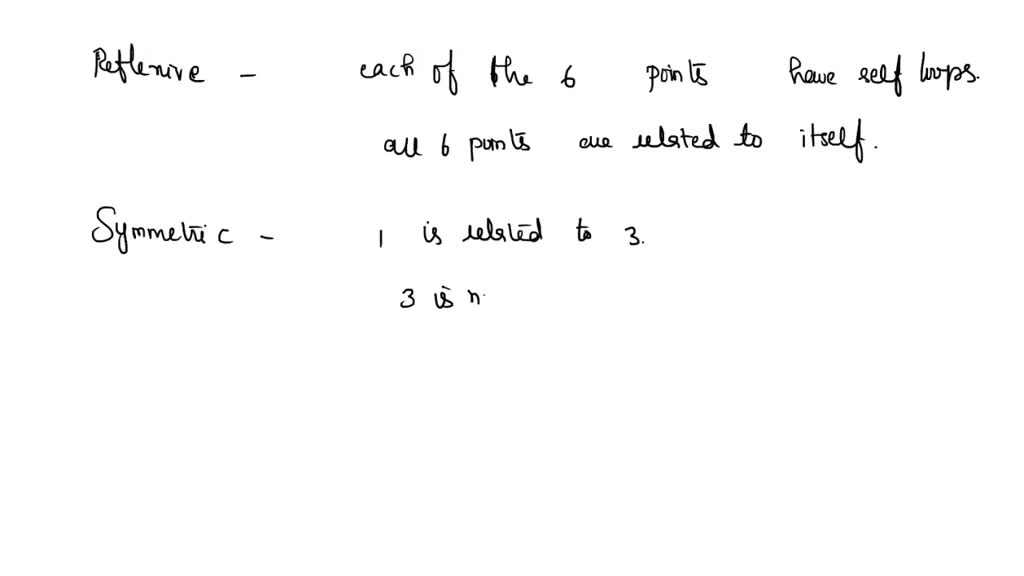 Reflexive - each of the 6 points have self loops.
all 6 points are related to itself.
Symmetric - 1 is related to 3.
3 is n